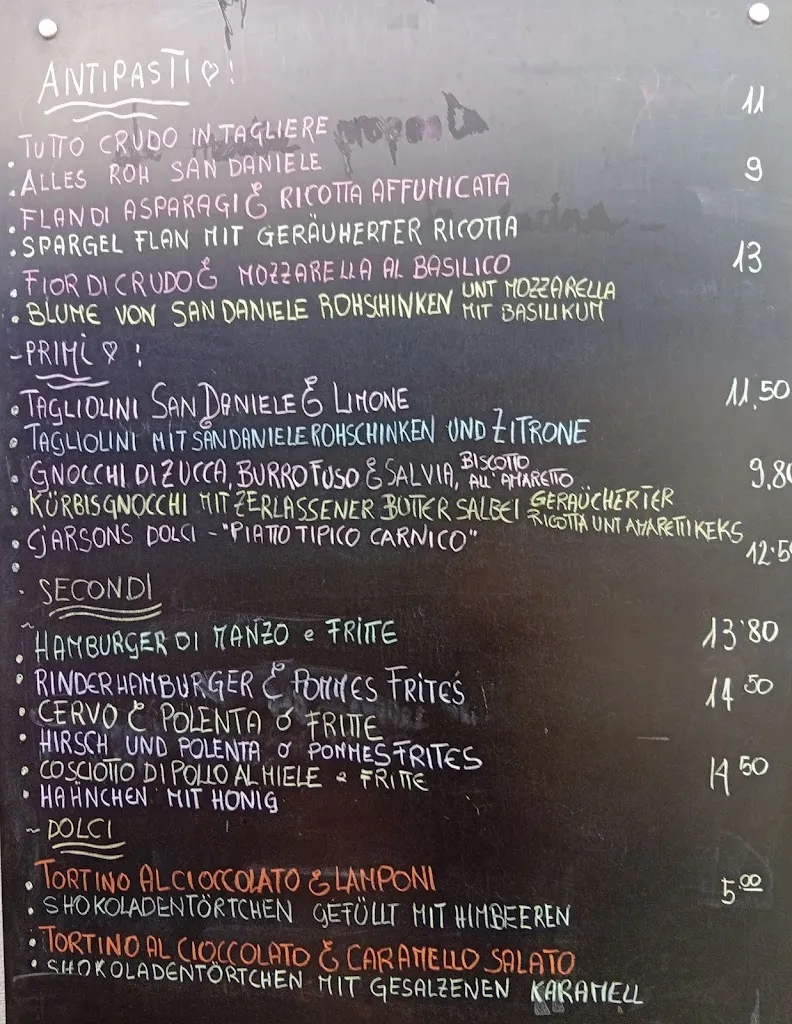 ANTIPASTI ♡!
TUTTO CRUDO IN TAGLIERE 11
ALLES ROH SAN DANIELE
FLAN DI ASPARAGI & RICOTTA AFFUMICATA 9
SPARGEL FLAN MIT GERÄUHERTER RICOTTA
FIOR DI CRUDO & MOZZARELLA AL BASILICO 13
BLUME VON SAN DANIELE ROHSHINKEN UNT MOZZARELLA MIT BASILIKUM
- PRIMI ♡ :
TAGLIOLINI SAN DANIELE & LIMONE 11.50
TAGLIOLINI MIT SAN DANIELE ROHSCHINKEN UND ZITRONE
GNOCCHI DI ZUCCA, BURRO FUSO & SALVIA, BISCOTTO ALL'AMARETTO 9.80
KÜRBISGNOCCHI MIT ZERLASSENER BUTTER SALBEI GERAÜCHERTER RICOTTA UNT AMARETTI KEKS
CJARSONS DOLCI - "PIATTO TIPICO CARNICO" 12.50
- SECONDI
HAMBURGER DI MANZO e FRITTE 13'80
RINDERHAMBURGER & POMMES FRITES
CERVO & POLENTA O FRITTE 14 50
HIRSCH UND POLENTA O POMMES FRITES
COSCIOTTO DI POLLO AL MIELE e FRITTE 14 50
HÄHNCHEN MIT HONIG
~ DOLCI
TORTINO AL CIOCCOLATO & LAMPONI 5.00
SHOKOLADENTÖRTCHEN GEFÜLLT MIT HIMBEEREN
TORTINO AL CIOCCOLATO & CARAMELLO SALATO
SHOKOLADENTÖRTCHEN MIT GESALZENEN KARAMELL